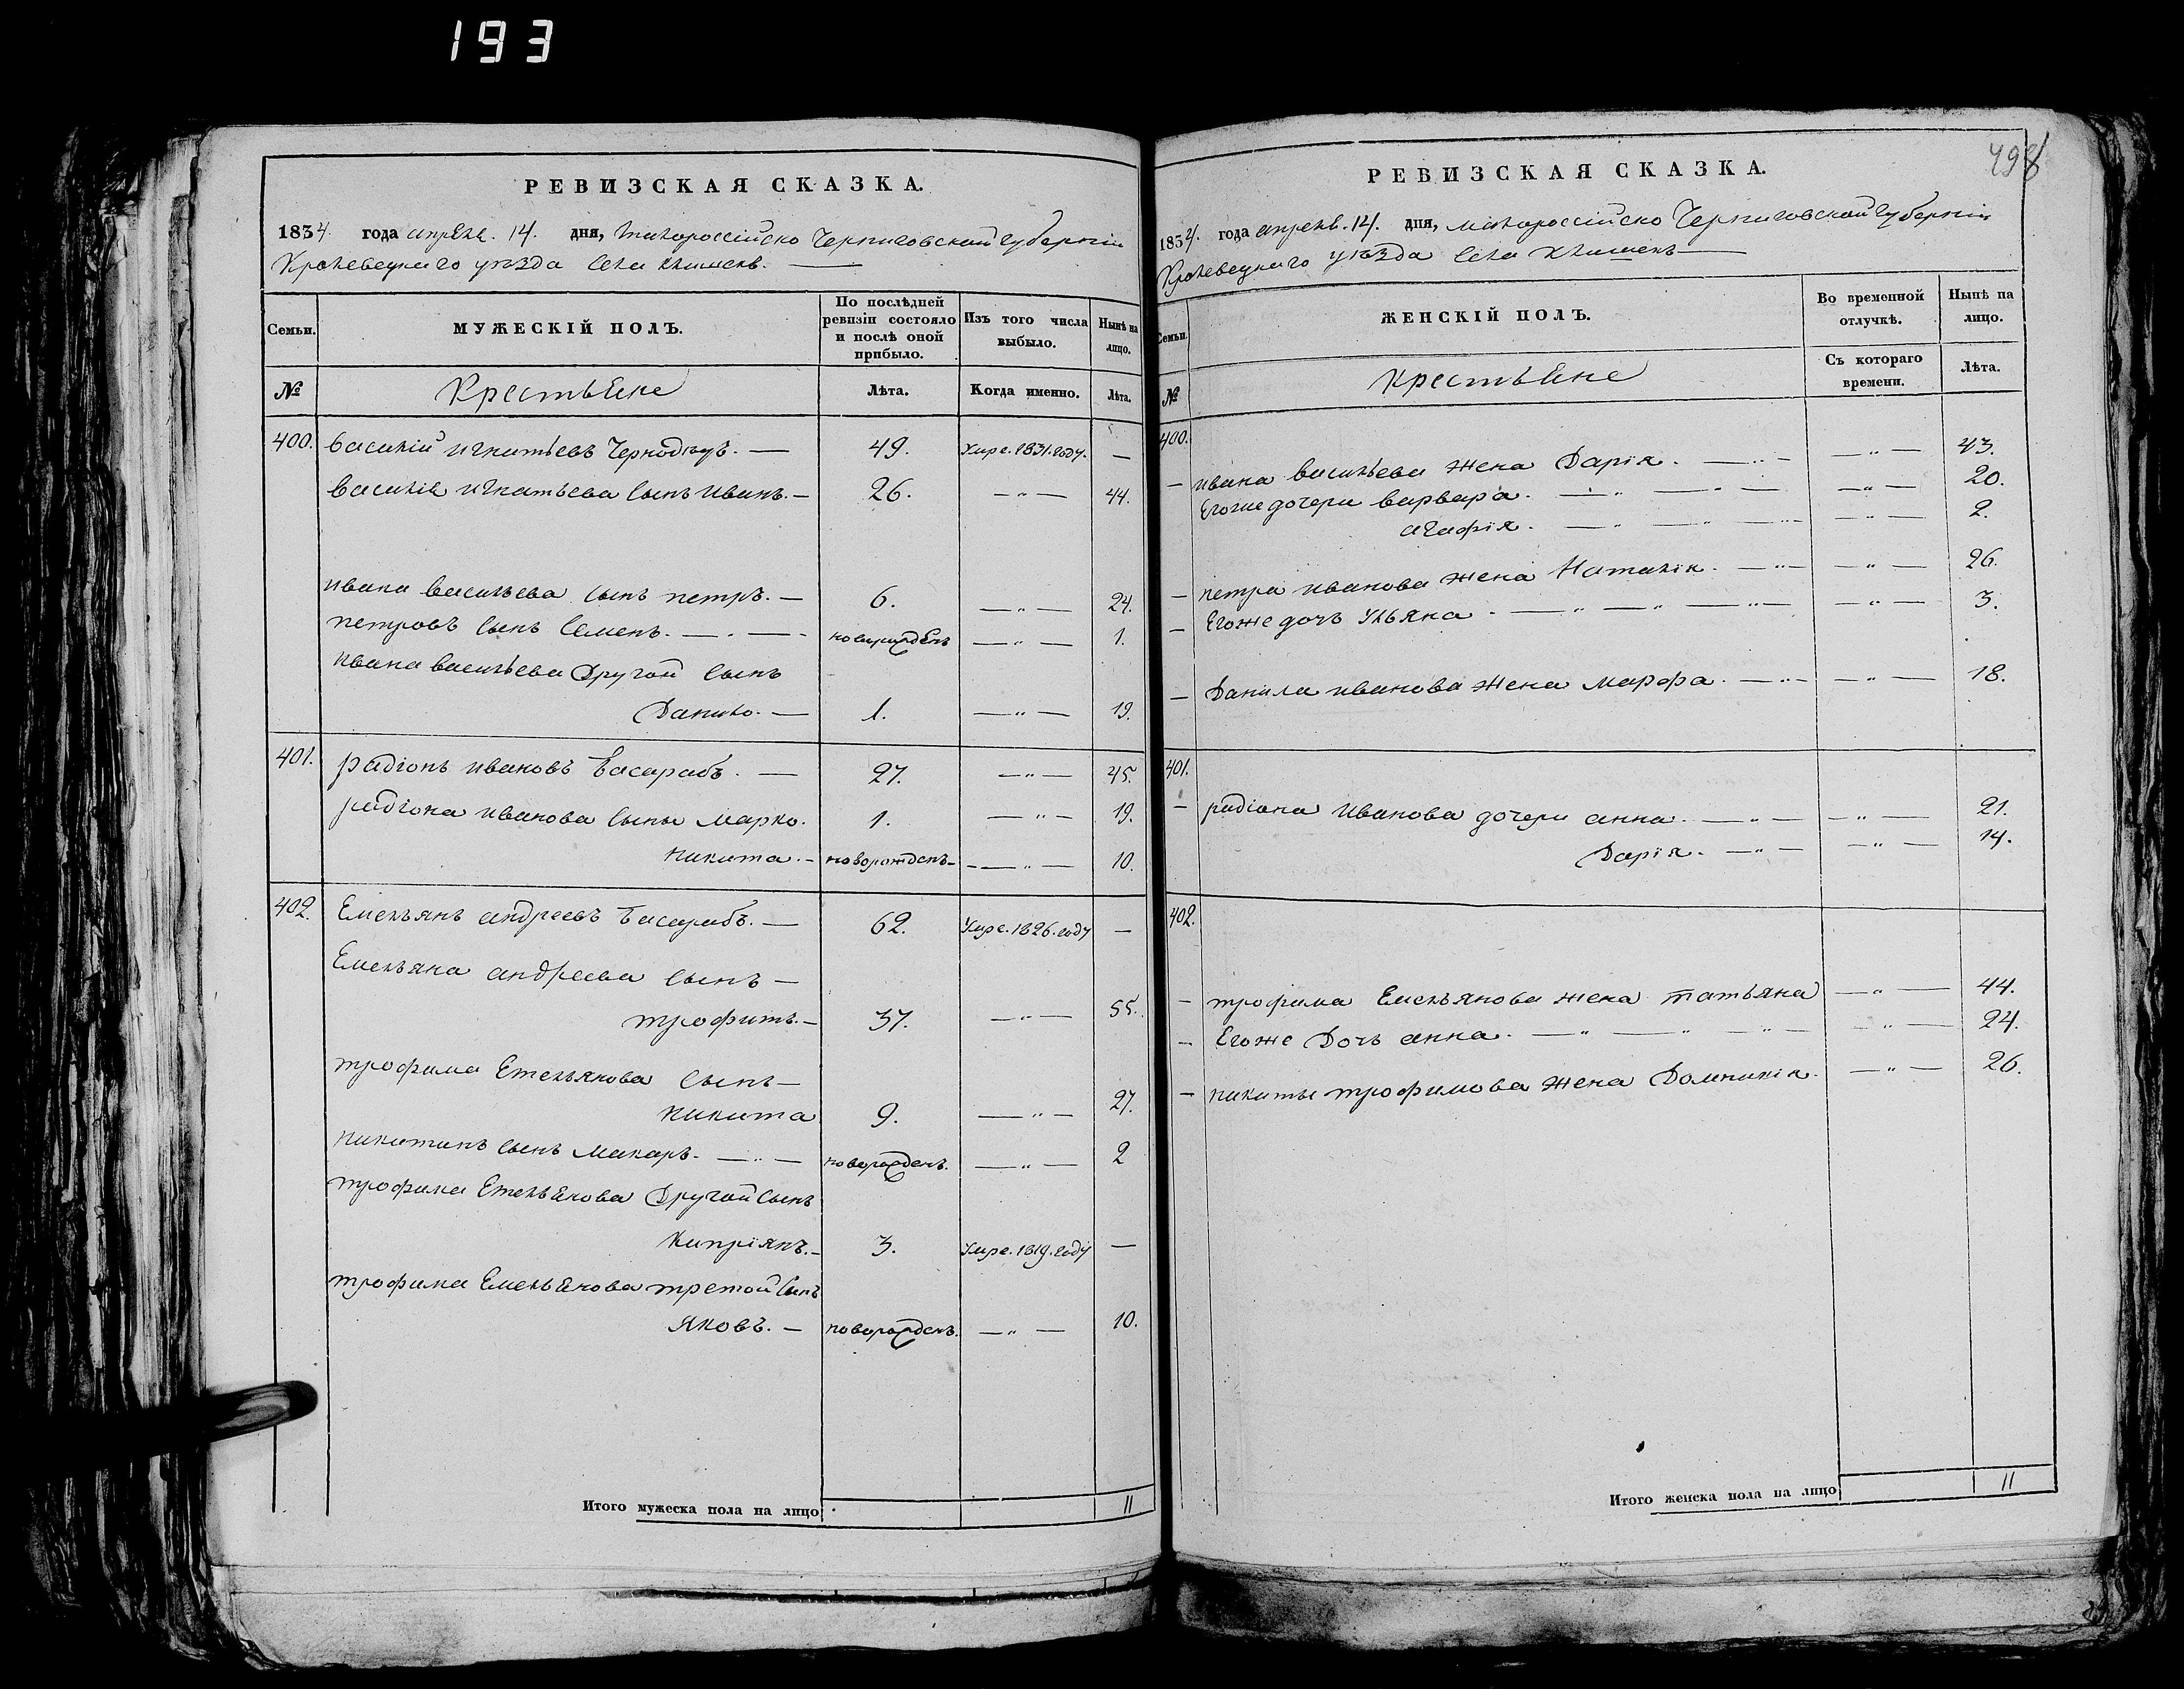 193
РЕВИЗСКАЯ СКАЗКА.
1834. года апреля. 14. дня, Малороссійско Черниговской губерніи
Кролевецкаго уѣзда Села Клишекъ.
Семьи. МУЖЕСКІЙ ПОЛЪ. По послѣдней ревизіи состояло и послѣ оной прибыло. Изъ того числа выбыло. Нынѣ на лицо.
№ Крестьяне Лѣта. Когда именно. Лѣта.
400. Василій Игнатьевъ 49. Умре. 1831. году. —
Василія Игнатьева Сынъ Иванъ. — 26. — „ — 44.
Ивана Васильева Сынъ петръ. — 6. — „ — 24.
петровъ Сынъ Семенъ. — новорожденъ — „ — 1.
Ивана Васильева Другой Сынъ
Данило. — 1. — „ — 19.
401. радіонъ ивановъ Басарабъ. — 27. — „ — 45.
радіона иванова Сыны Марко. 1. — „ — 19.
никита. — новорожденъ — „ — 10.
402. Емельянъ андреевъ Басарабъ. — 62. Умре. 1826. году —
Емельяна андреева Сынъ —
трофимъ. — 37. — „ — 55.
трофима Емельянова Сынъ —
никита 9. — „ — 27.
никитинъ Сынъ Макаръ. — „ — новорожденъ. — „ — 2
трофима Емельянова Другой Сынъ
Кипріянъ. — 3. Умре. 1819. году —
трофима Емельянова третой Сынъ
яковъ. — новорожденъ. — „ — 10.
Итого мужеска пола на лицо 11
498
РЕВИЗСКАЯ СКАЗКА.
1834. года апреля. 14. дня, Малороссійско Черниговской губерніи
Кролевецкаго уѣзда Села Клишекъ —
Семьи. ЖЕНСКІЙ ПОЛЪ. Во временной отлучкѣ. Нынѣ на лицо.
№ Крестьяне Съ котораго времени. Лѣта.
400.
— ивана васильева жена Дарія. — „ — — „ — 43.
Егоже дочери варвара. — „ — „ — — „ — 20.
агафія. — „ — „ — — „ — 2.
— петра иванова жена Наталія. — „ — — „ — 26.
— Егоже дочь Ульяна. — „ — „ — — „ — 3.
— Данила иванова жена Марфа. — „ — — „ — 18.
401.
— радіона Иванова дочери анна. — „ — — „ — 21.
Дарія. — „ — — „ — 14.
402.
— трофима Емельянова жена татьяна — „ — 44.
— Егоже Дочь анна. — „ — „ — — „ — 24.
— никиты трофимова жена Домникія. — „ — 26.
Итого женска пола на лицо 11